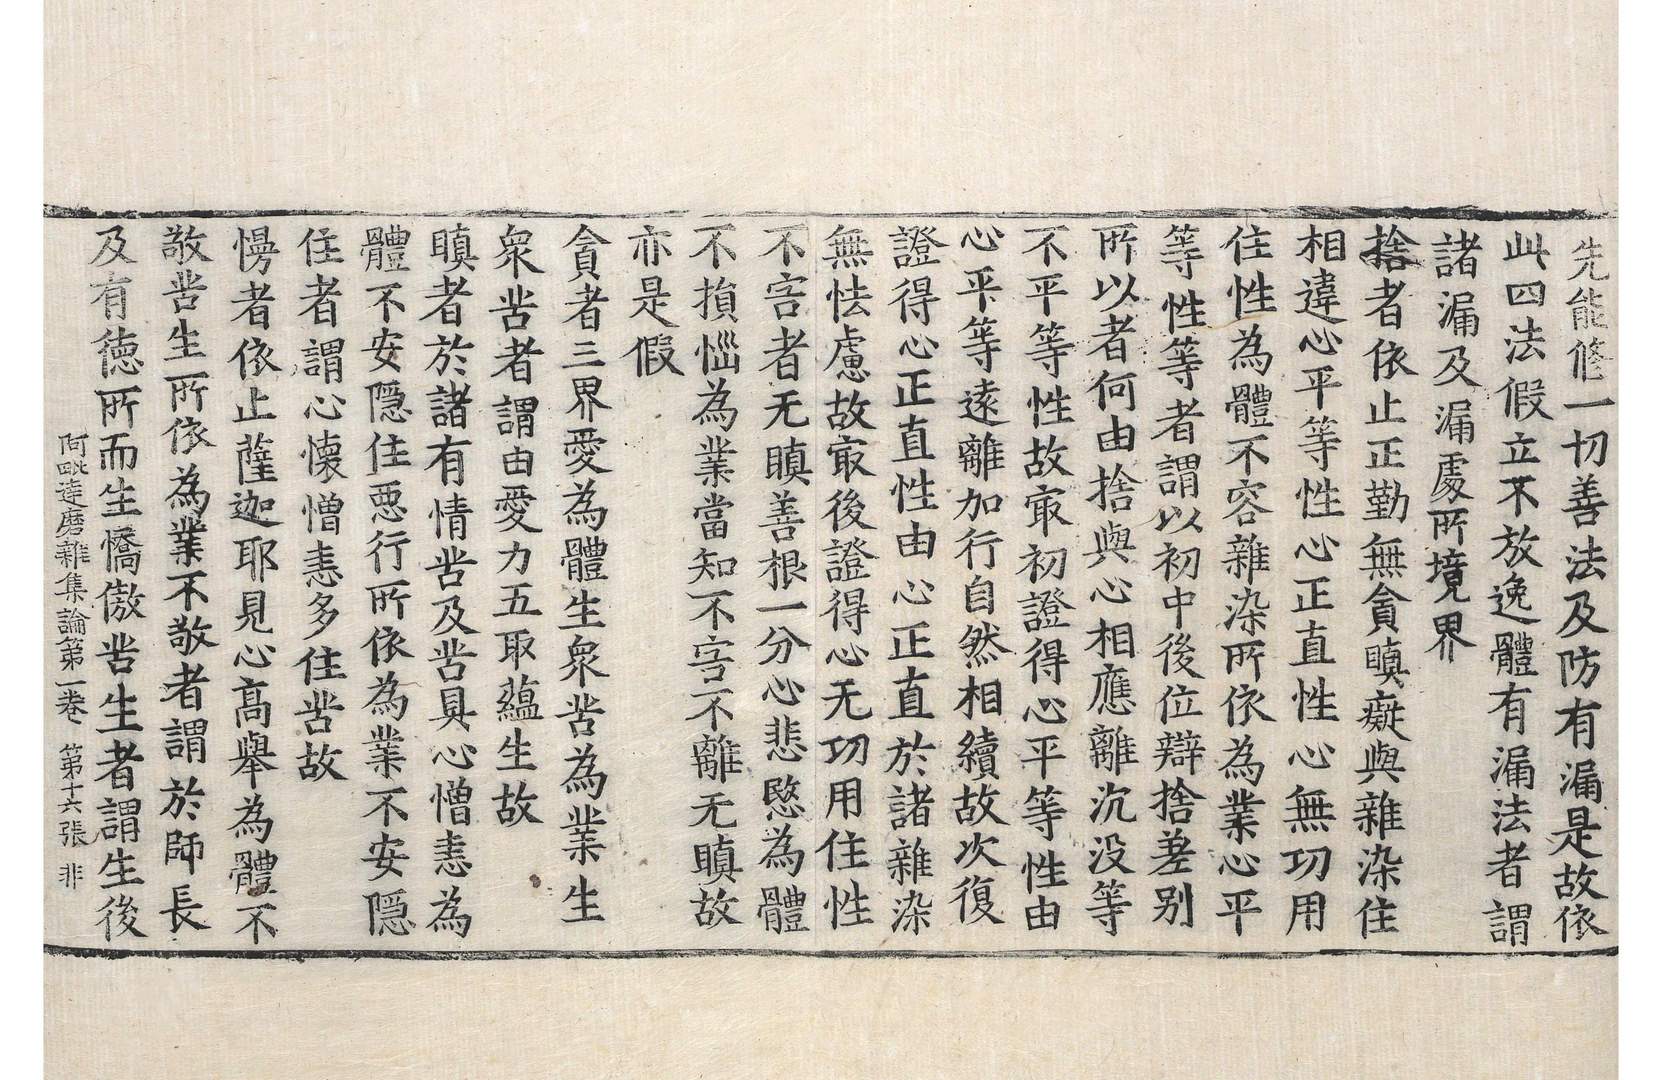 先能修一切善法及防有漏是故依
此四法假立不放逸體有漏法者謂
諸漏及漏處所境界
捨者依止正勤無貪瞋癡與雜染住
相違心平等性心正直性心無功用
住性為體不容雜染所依為業心平
等性等者謂以初中後位辯捨差別
所以者何由捨與心相應離沉没等
不平等性故㝡初證得心平等性由
心平等遠離加行自然相續故次復
證得心正直性由心正直於諸雜染
無怯慮故㝡後證得心无功用住性
不害者无瞋善根一分心悲愍為體
不損惱為業當知不害不離无瞋故
亦是假
貪者三界愛為體生衆苦為業生
衆苦者謂由愛力五取蘊生故
瞋者於諸有情苦及苦具心憎恚為
體不安隱住惡行所依為業不安隱
住者謂心懷憎恚多住苦故
慢者依止薩迦耶見心高舉為體不
敬苦生所依為業不敬者謂於師長
及有德所而生憍傲苦生者謂生後
阿毗達磨雜集論第一卷 第十六張 非